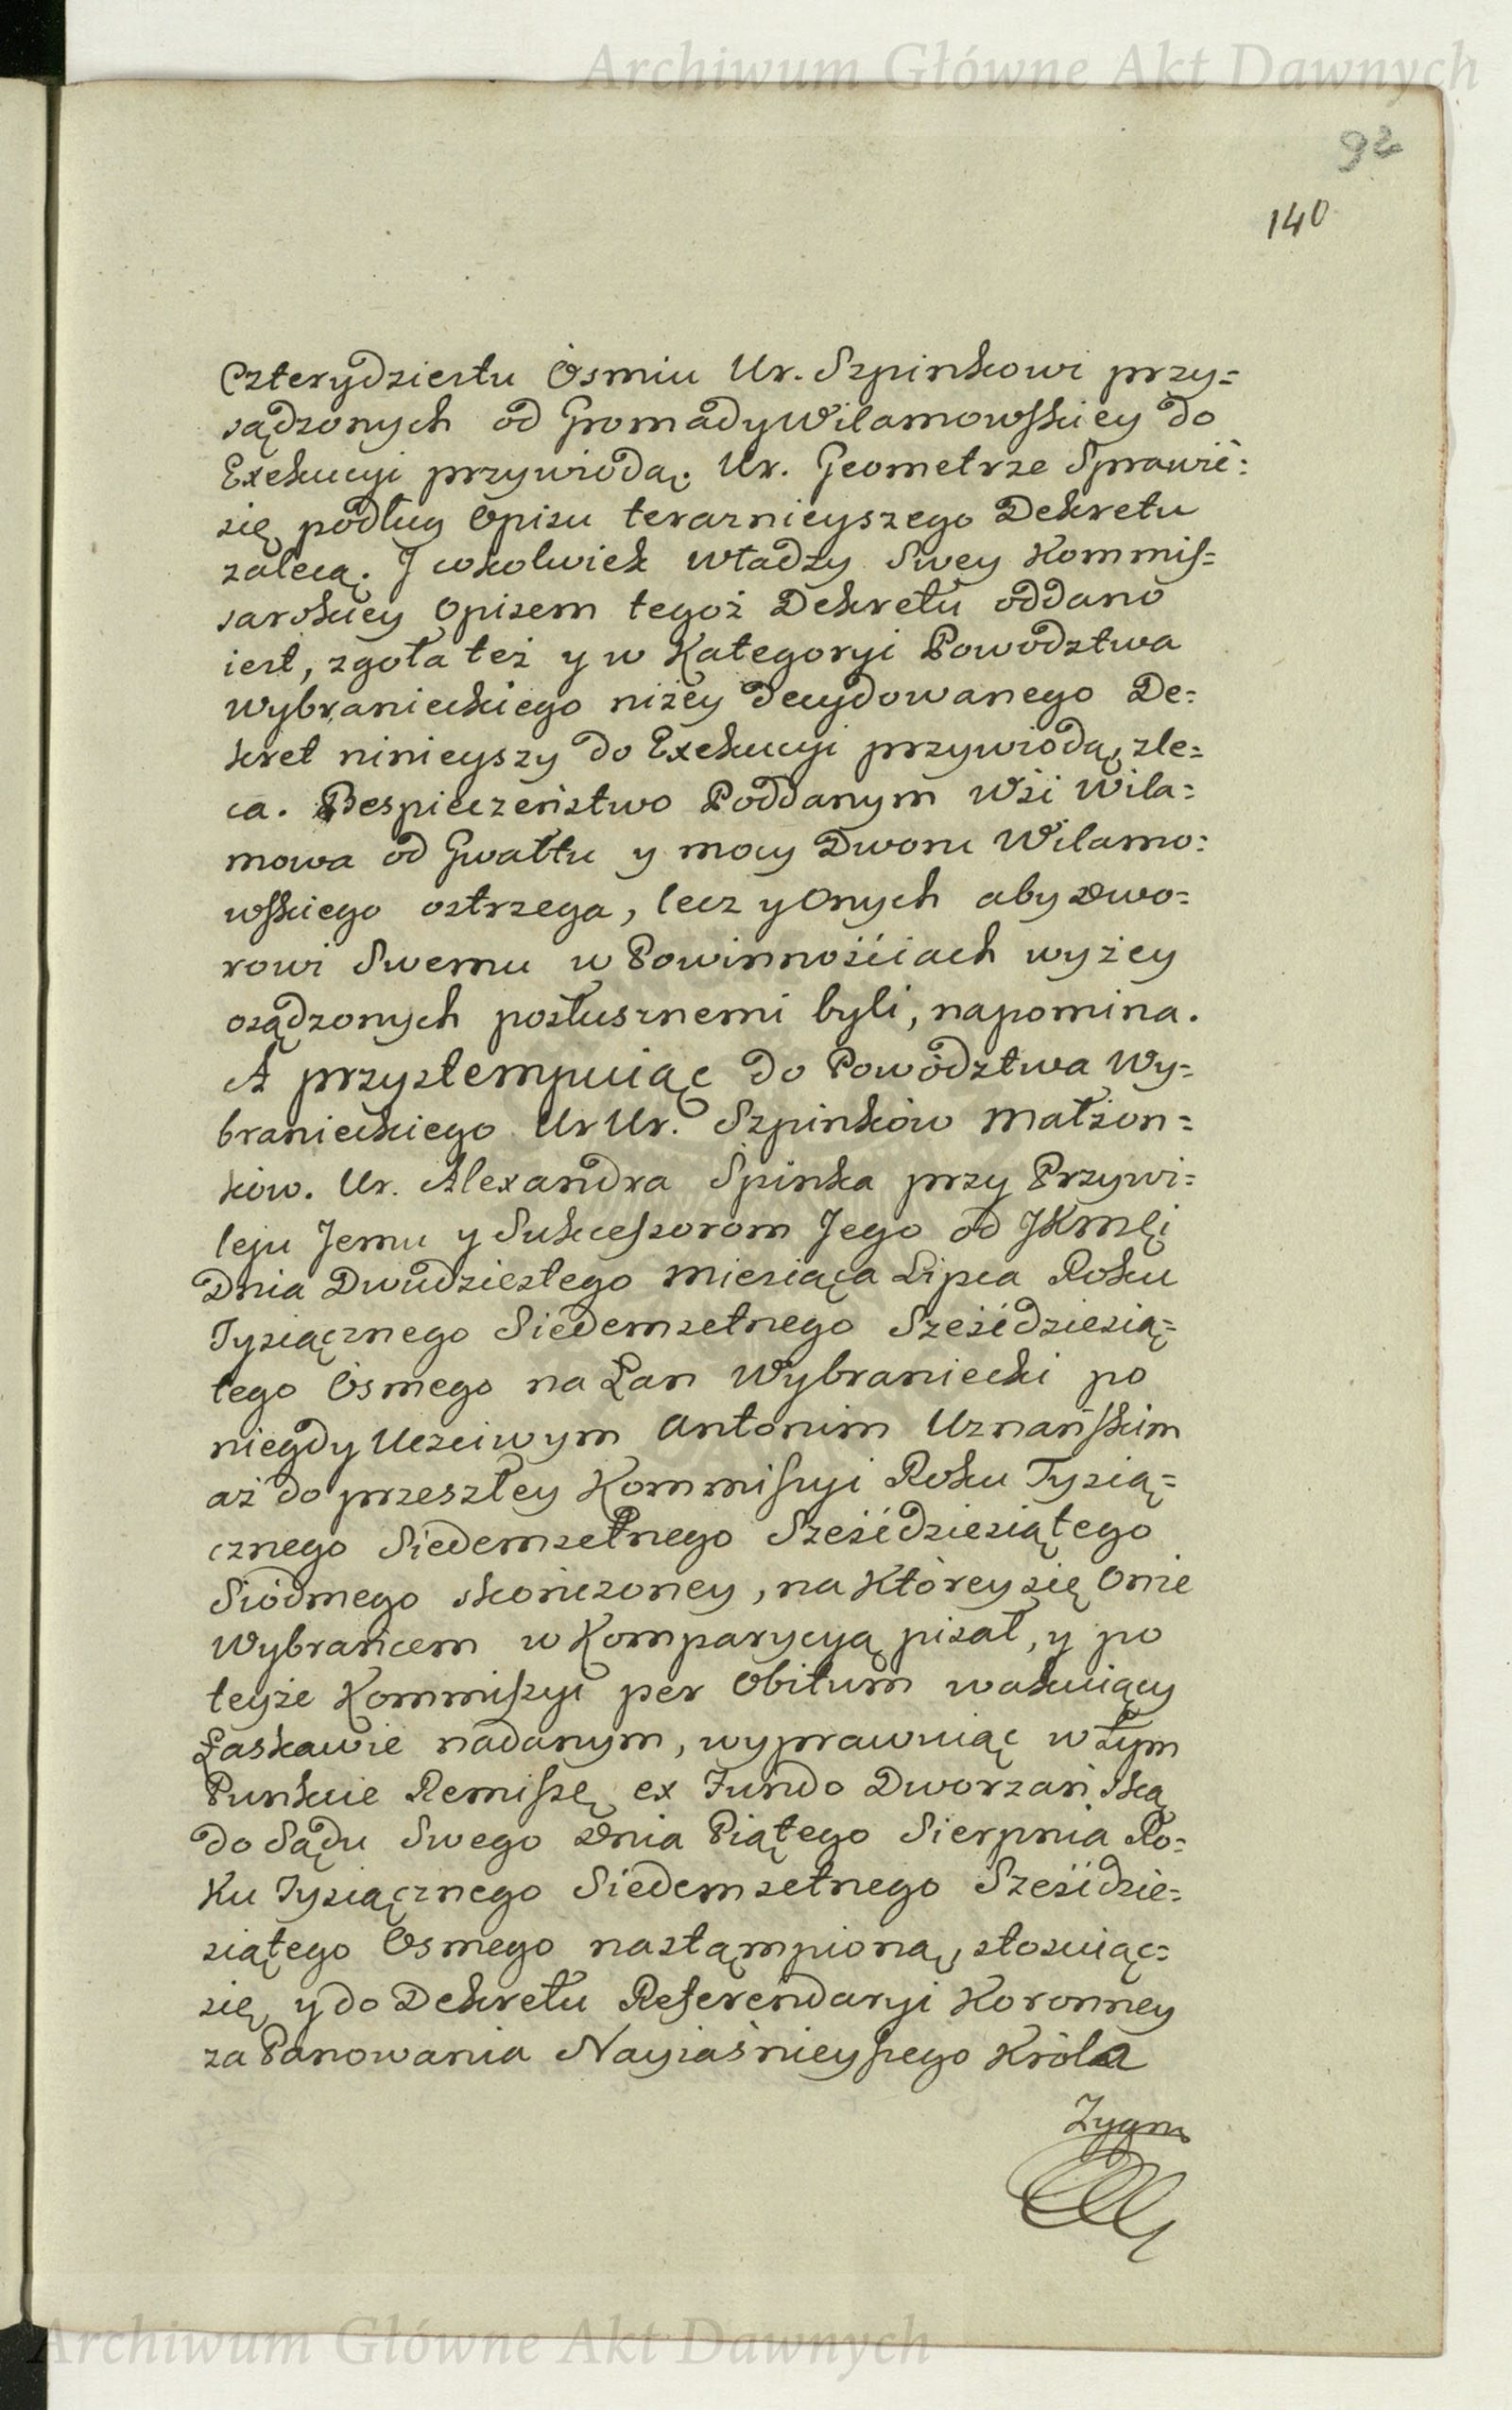 Archiwum Główne Akt Dawnych
92
140
Czterydziestu Osmiu Ur. Szpinkowi przy=
sądzonych od Gromady Wilamowskiey do
Exekucyi przywiodą. Ur. Geometrze Sprawić=
się podług Opisu teraznieyszego Dekretu
zalecą. I cokolwiek władzy Swey Kommis=
sarskiey Opisem tegoż Dekretu oddano
iest, zgoła też y w Kategoryi Powodztwa
Wybranieckiego niżey decydowanego De=
kret ninieyszy do Exekucyi przywiodą, zle=
ca. Bespieczeństwo Poddanym Wsi Wila=
mowa od Gwałtu y mocy Dworu Wilamo=
wskiego ostrzega, lecz y Onych aby Dwo=
rowi Swemu w Powinnościach wyżey
osądzonych posłusznemi byli, napomina.
A przystempuiąc do Powództwa Wy=
branieckiego Ur Ur. Szpinków Małżon=
ków. Ur. Alexandra Spinka przy Przywi=
leju Jemu y Sukcessorom Jego od JKmci
Dnia Dwudziestego Miesiąca Lipca Roku
Tysiącznego Siedemsetnego Sześćdziesią=
tego Osmego na Łan Wybraniecki po
niegdy Uczciwym Antonim Uznańskim
aż do przeszłey Kommissyi Roku Tysią=
cznego Siedemsetnego Sześćdziesiątego
Siódmego skończoney, na Którey się Onże
Wybrańcem w Komparycyą pisał, y po
teyże Kommissyi per Obitum wakuiący
Łaskawie nadanym, wyprawuiąc w tym
Punkcie Remissę ex Fundo Dworzańską
do Sądu Swego Dnia Piątego Sierpnia Ro=
ku Tysiącznego Siedemsetnego Sześćdzie=
siątego Osmego nastąmpioną, stosuiąc=
się y do Dekretu Referendaryi Koronney
za Panowania Nayiaśnieyszego Króla
Zygm
Archiwum Główne Akt Dawnych